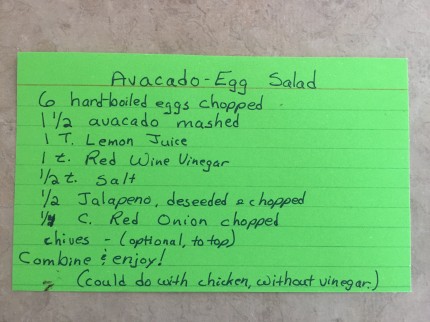 Avacado-Egg Salad
6 hard-boiled eggs chopped
1 1/2 avacado mashed
1 T. Lemon Juice
1 t. Red Wine Vinegar
1/2 t. Salt
1/2 Jalapeno, deseeded & chopped
1/4 C. Red Onion chopped
chives - (optional, to top)
Combine & enjoy!
(could do with chicken, without vinegar.)